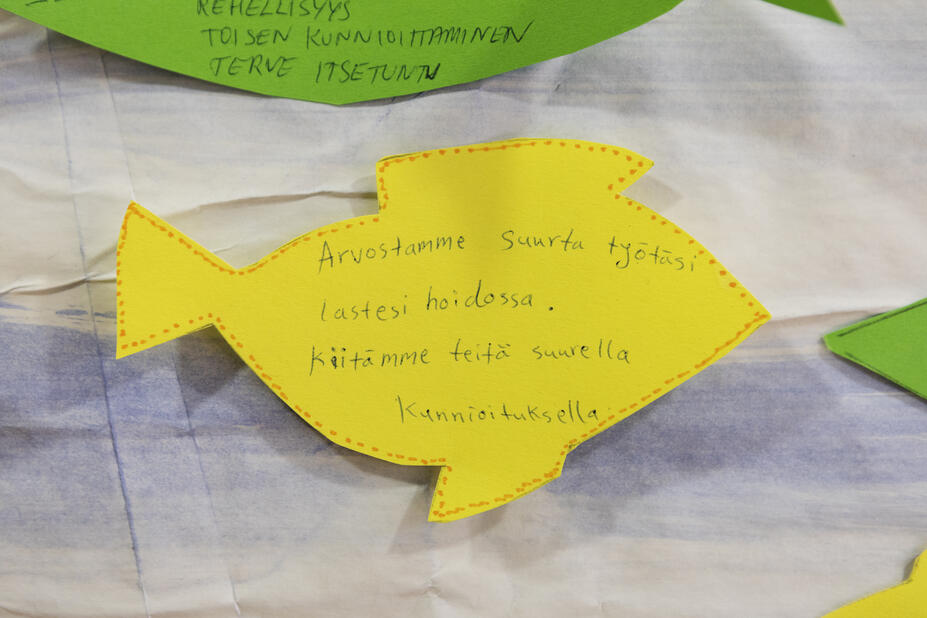 REHELLISYYS
TOISEN KUNNIOITTAMINEN
TERVE ITSETUNTO
Arvostamme suurta työtäsi
lastesi hoidossa.
Kiitämme teitä suurella
Kunnioituksella